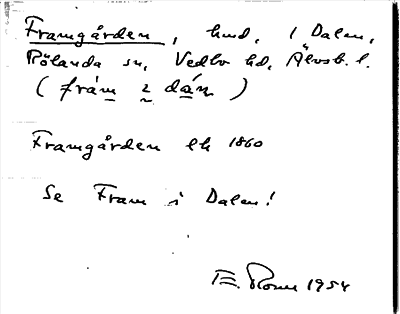 Framgården, hmd, i Dalen,
Rölanda sn, Vedbo hd, Älvsb. l.
(fråm i dán)
Framgården ek 1860
Se Fram i Dalen!
1954